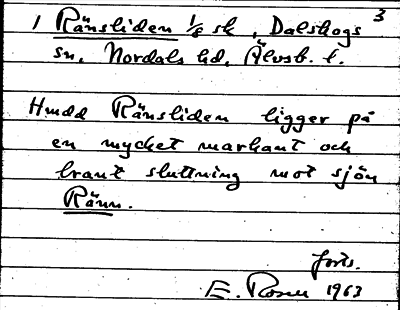 3
1 Ränsliden 1/8 sk, Dalskogs
sn, Nordals hd, Älvsb. l.
Hmdd Ränsliden ligger på
en mycket markant och
brant sluttning mot sjön
Ränn.
forts.
E. Rosen 1963